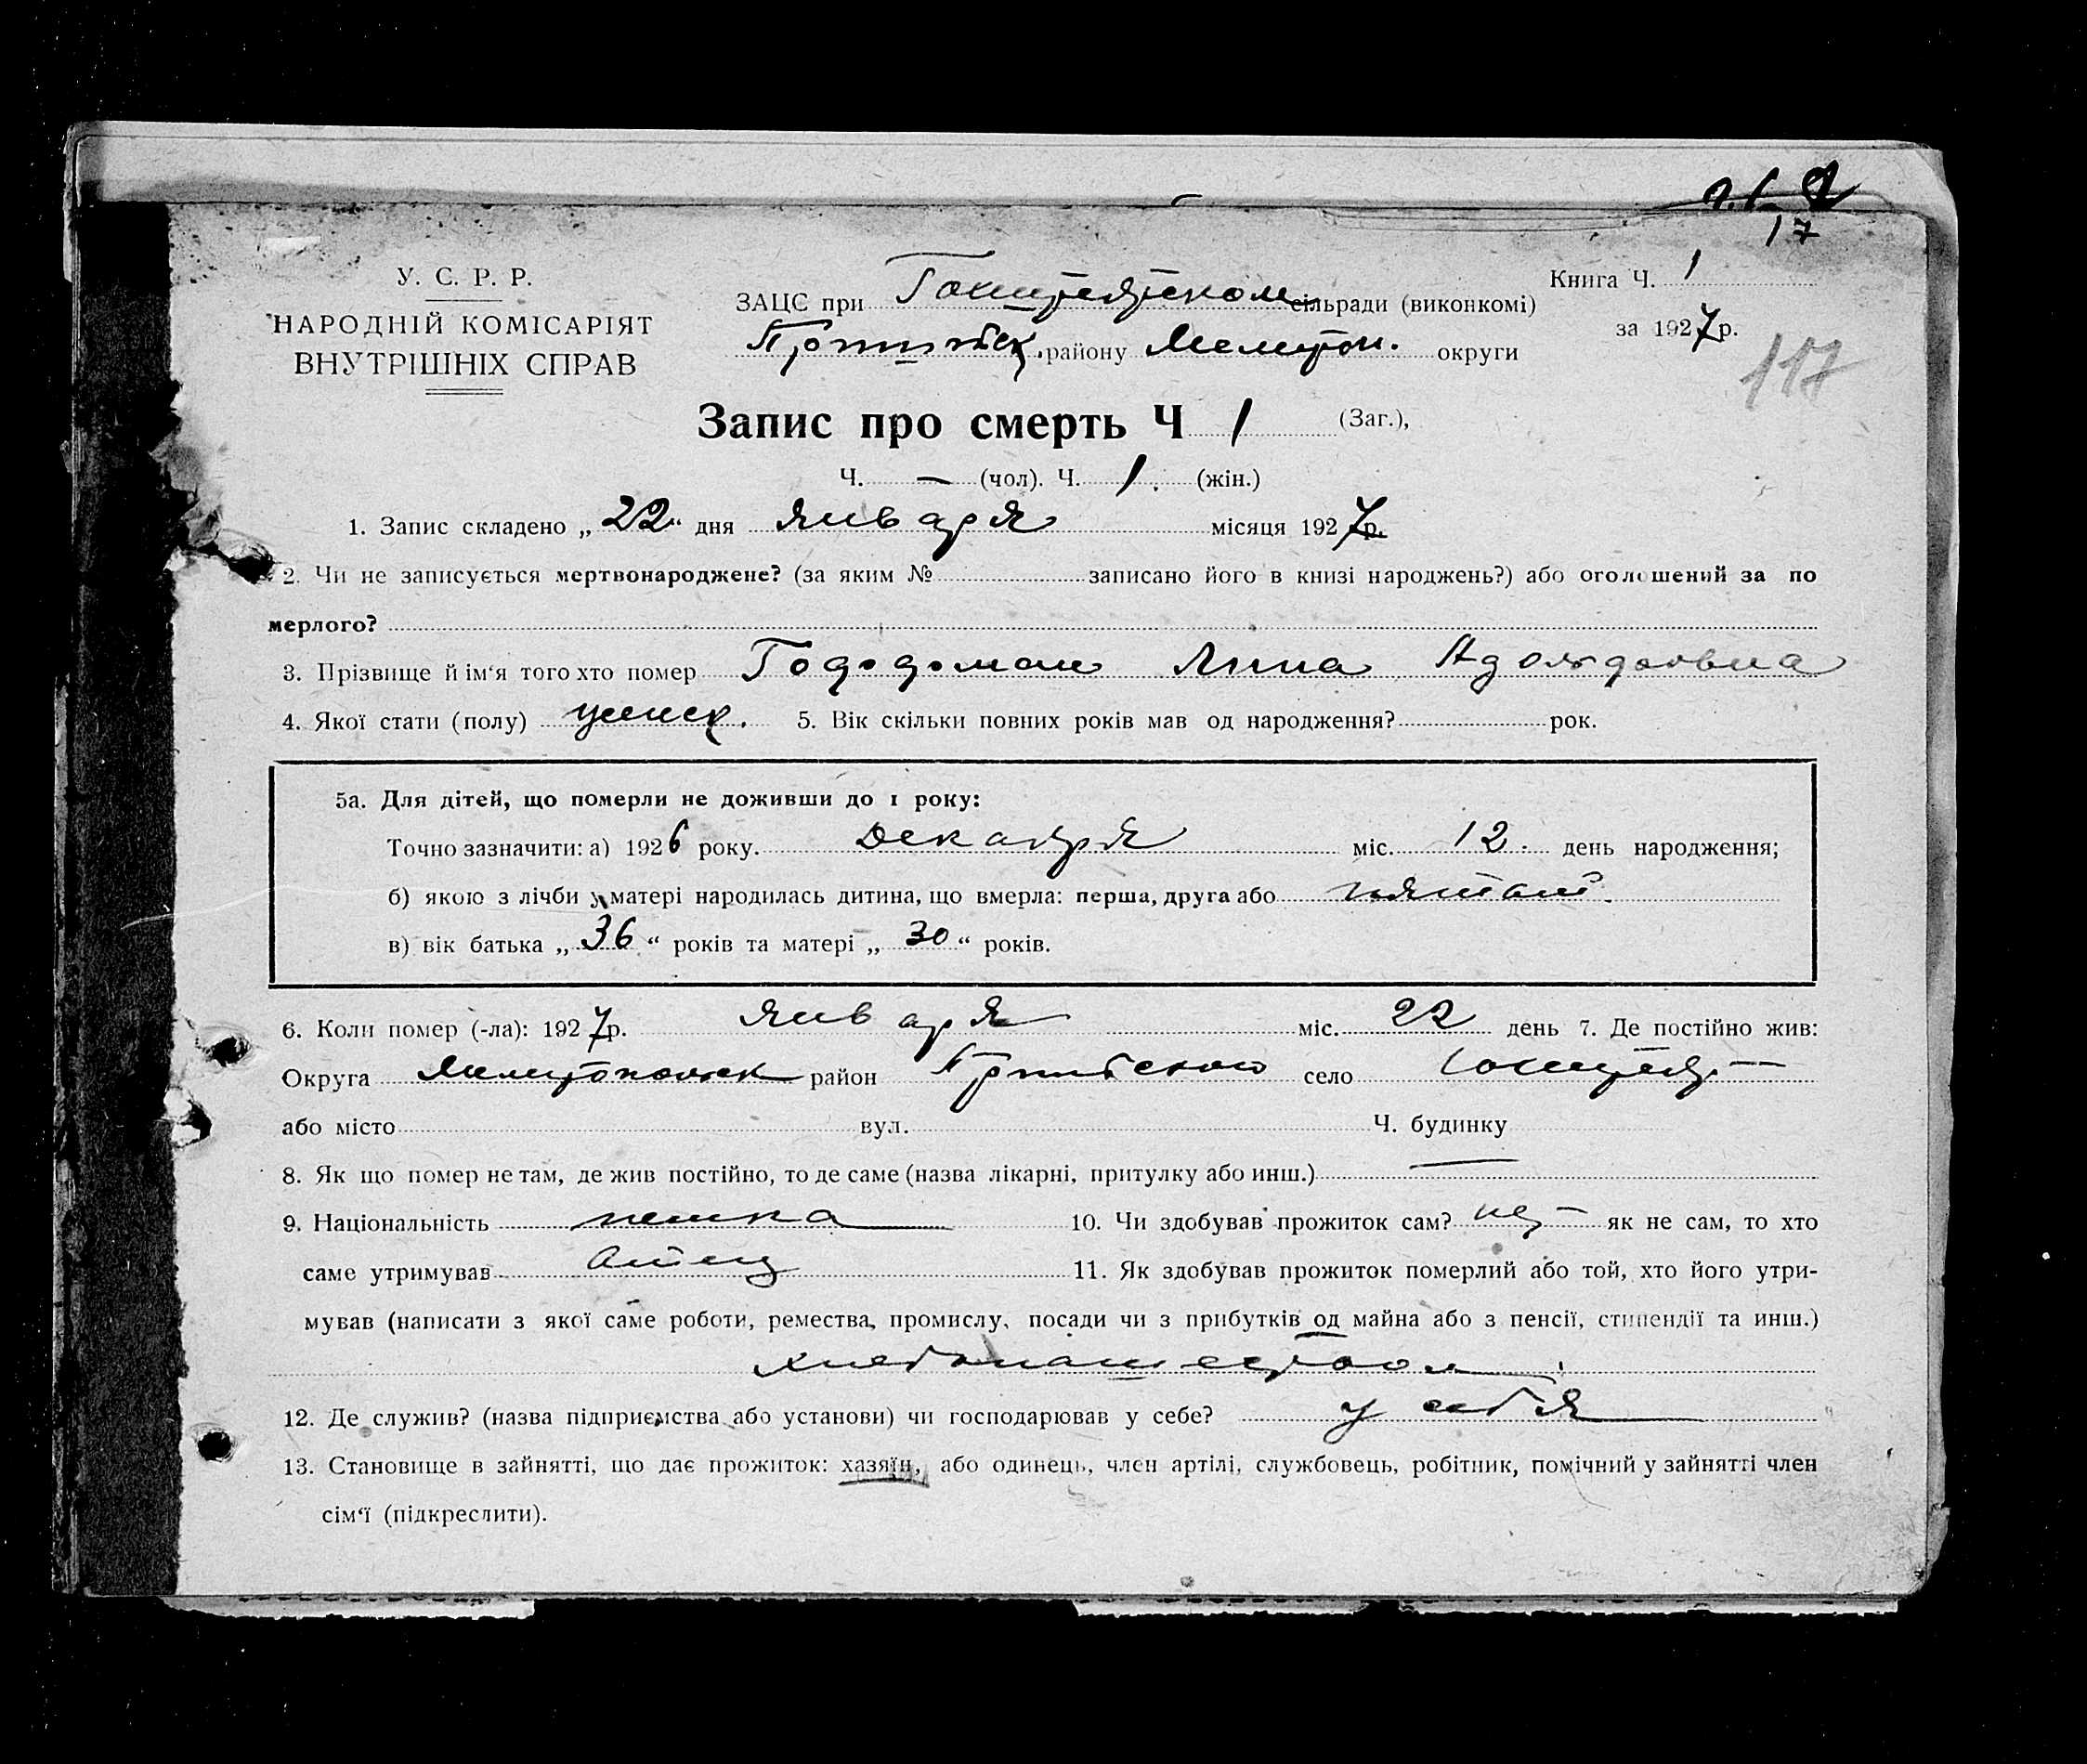 17
У. С. Р. Р.
НАРОДНІЙ КОМІСАРІЯТ
ВНУТРІШНІХ СПРАВ
ЗАЦС при Гохштедтском сільради (виконкомі)
Пришибск. району Мелитоп. округи
Книга Ч. 1
за 1927 р.
117
Запис про смерть Ч 1 (Заг.),
Ч. — (чол). Ч. 1. (жін.)
1. Запис складено „22“ дня января місяця 1927 р.
2. Чи не записується мертвонароджене? (за яким № записано його в книзі народжень?) або оголошений за по
мерлого?
3. Прізвище й ім‘я того хто помер Гофман Анна Адольфовна
4. Якої стати (полу) женск. 5. Вік скільки повних років мав од народження? рок.
5а. Для дітей, що померли не доживши до 1 року:
Точно зазначити: а) 1926 року. Декабря міс. 12. день народження;
б) якою з лічби у матері народилась дитина, що вмерла: перша, друга або пятой.
в) вік батька „36“ років та матері „30“ років.
6. Коли помер (-ла): 1927 р. января міс. 22 день 7. Де постійно жив:
Округа Мелитопольск район Пришибского село Гохштедт —
або місто вул. Ч. будинку
8. Як що помер не там, де жив постійно, то де саме (назва лікарні, притулку або инш.) —
9. Національність немка 10. Чи здобував прожиток сам? нет як не сам, то хто
саме утримував отец 11. Як здобував прожиток померлий або той, хто його утри-
мував (написати з якої саме роботи, ремества, промислу, посади чи з прибутків од майна або з пенсії, стипендії та инш.)
хлебопашеством
12. Де служив? (назва підприємства або установи) чи господарював у себе? у себя
13. Становище в зайнятті, що дає прожиток: хазяїн, або одинець, член артілі, службовець, робітник, помічний у зайнятті член
сім‘ї (підкреслити).